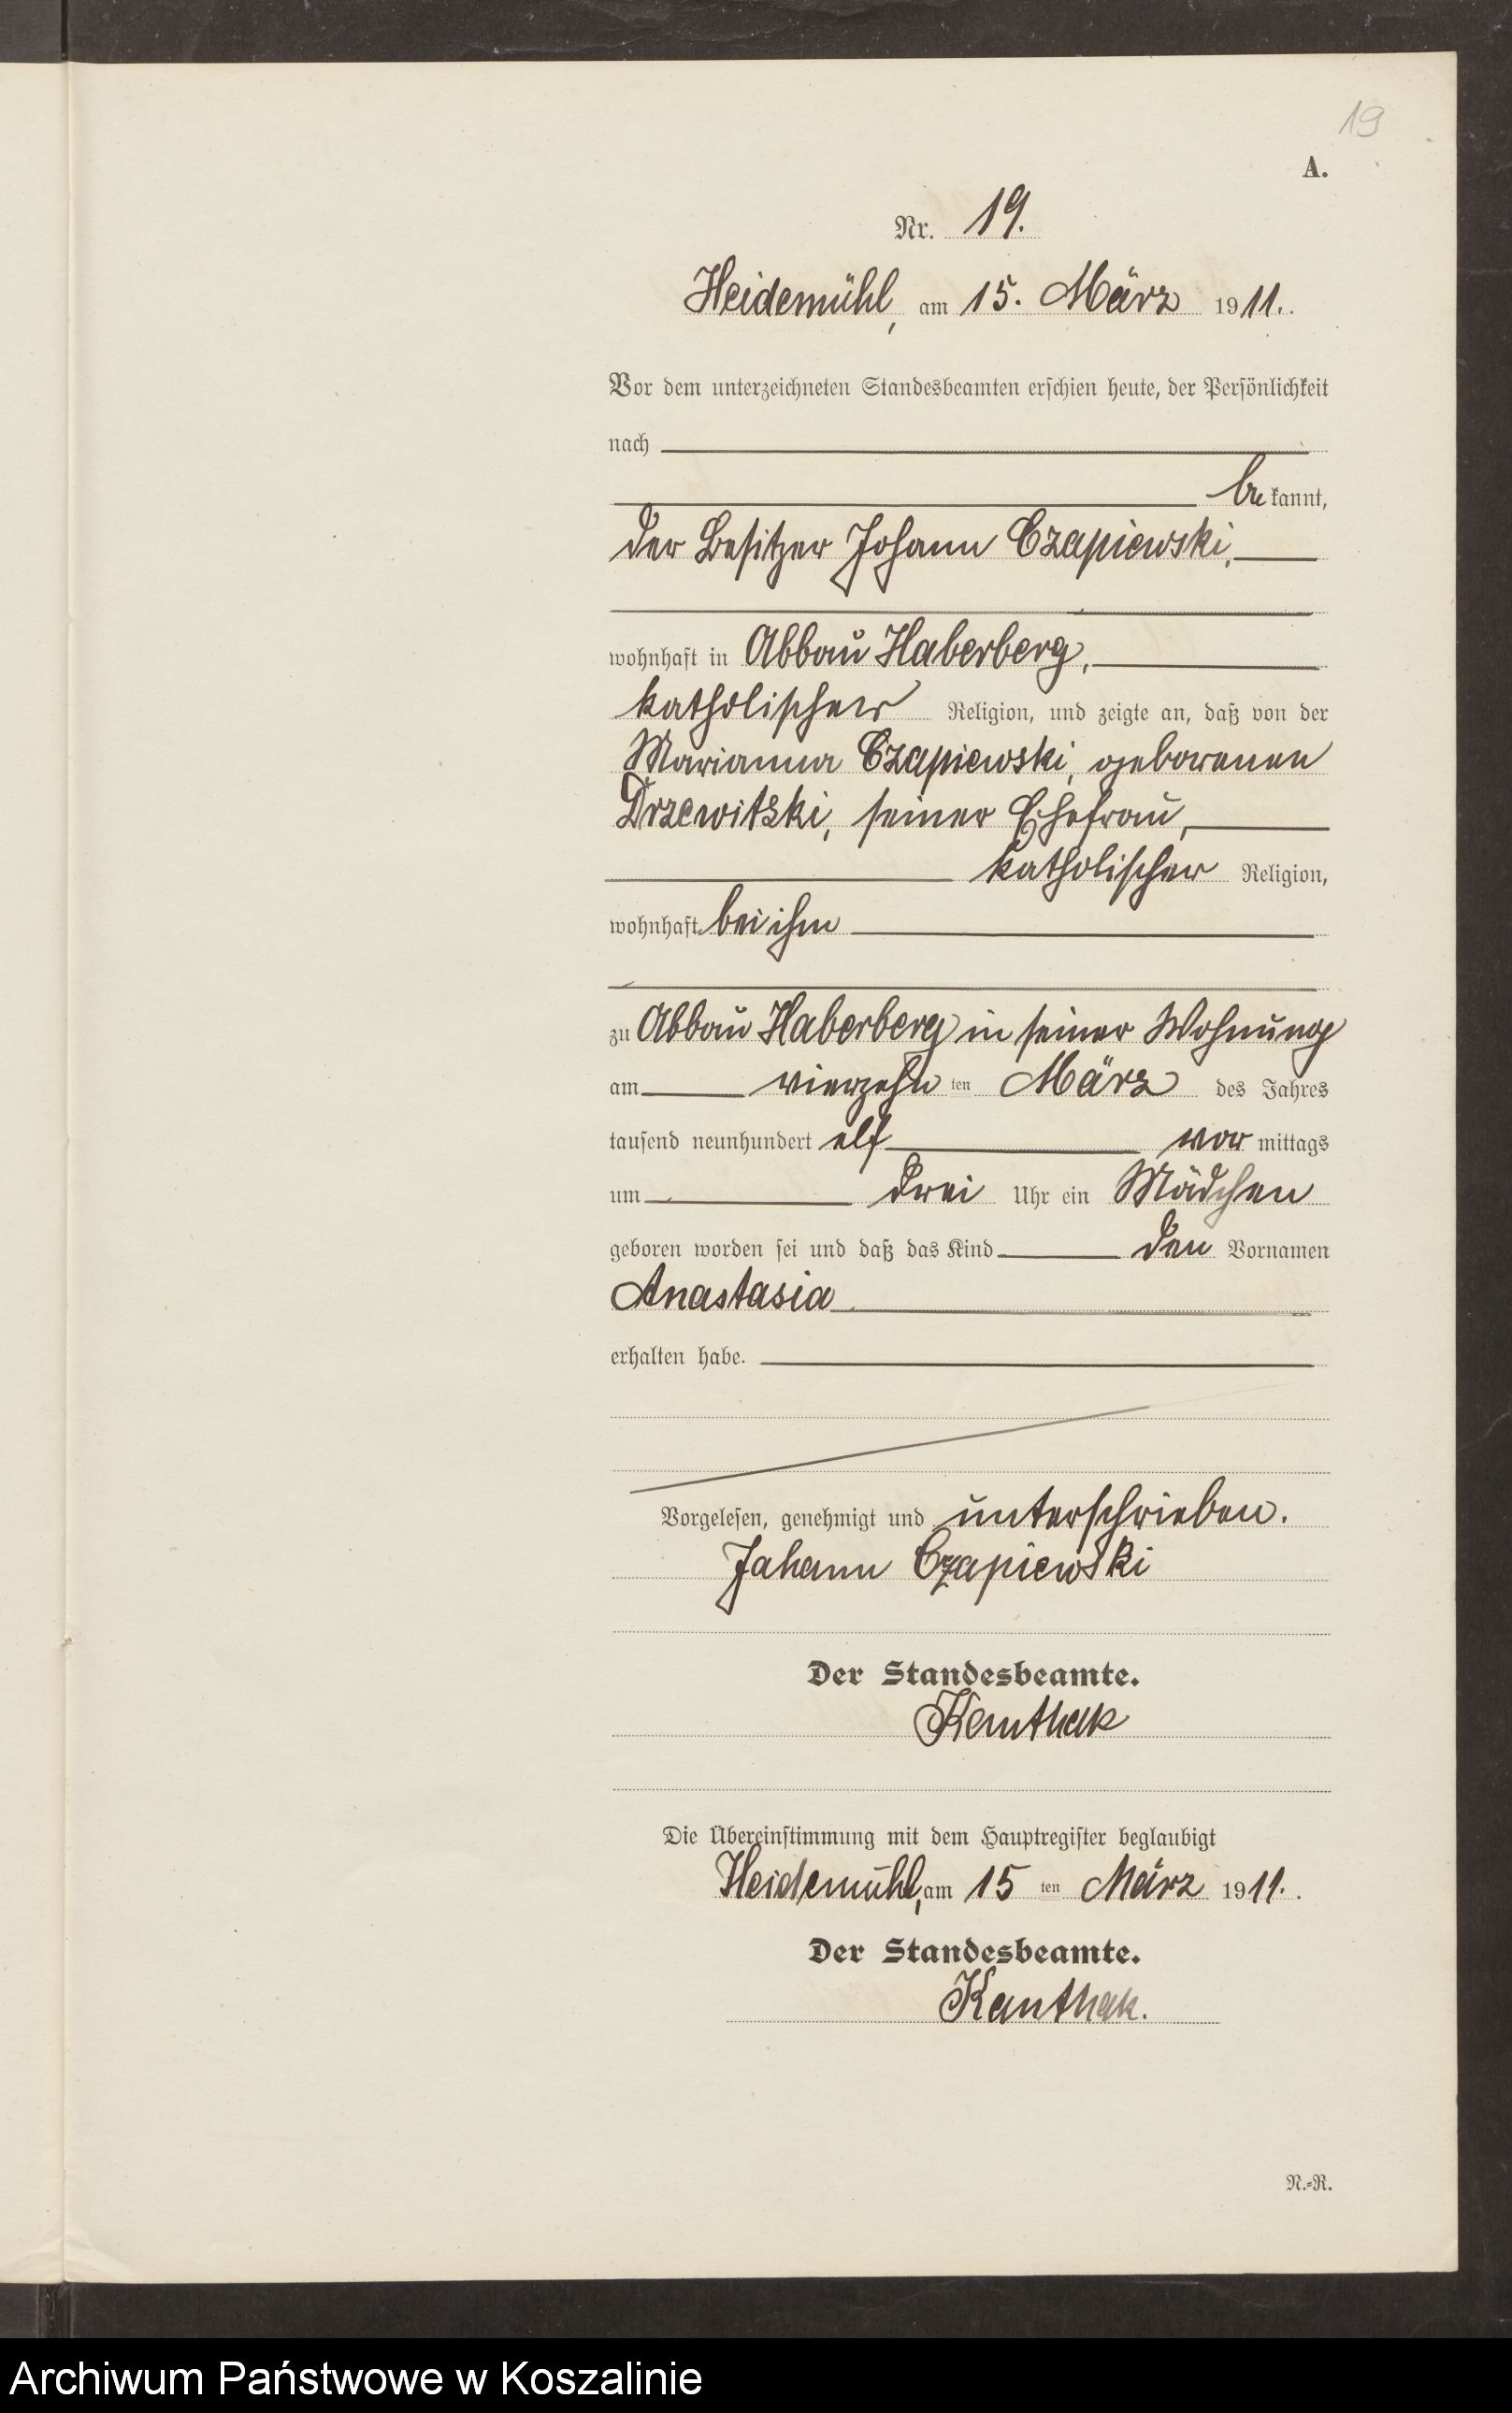 19
A.
Nr. 19.
Heidemühl, am 15. März 1911.
Vor dem unterzeichneten Standesbeamten erschien heute, der Persönlichkeit
nach
bekannt,
der Besitzer Johann Czapiewski,
wohnhaft in Abbau Haberberg,
katholischer Religion, und zeigte an, daß von der
Marianna Czapiewski, geborenen
Drzewitzki, seiner Ehefrau,
katholischer Religion,
wohnhaft bei ihm
zu Abbau Haberberg in seiner Wohnung
am vierzehnten März des Jahres
tausend neunhundert elf vormittags
um drei Uhr ein Mädchen
geboren worden sei und daß das Kind den Vornamen
Anastasia
erhalten habe.
Vorgelesen, genehmigt und unterschrieben.
Johann Czapiewski
Der Standesbeamte.
Kanthak
Die Übereinstimmung mit dem Hauptregister beglaubigt
Heidemühl, am 15ten März 1911.
Der Standesbeamte.
Kanthak.
N.=R.
Archiwum Państwowe w Koszalinie